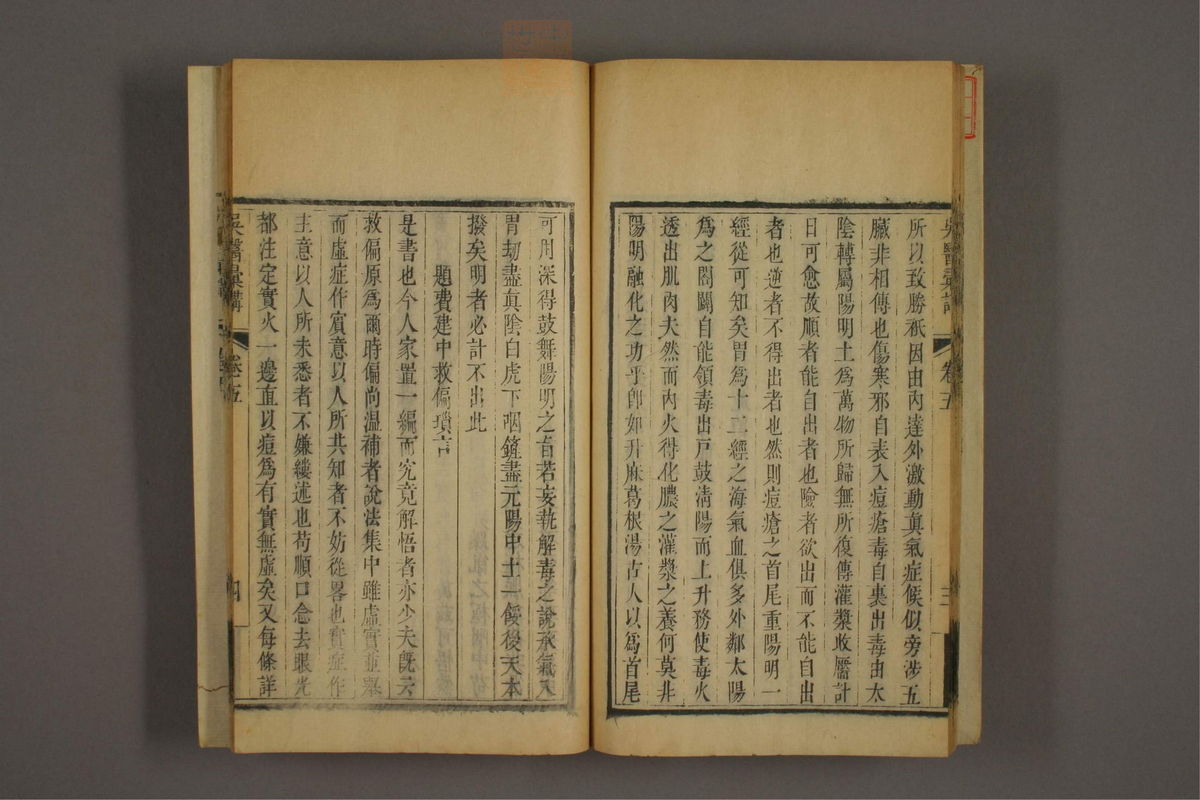 吳醫彙講 卷五 三
所以致勝祇因由內達外激動真氣症候似旁涉五
臟非相傳也傷寒邪自表入痘瘡毒自裏出毒由太
陰轉屬陽明土為萬物所歸無所復傳灌漿收靨計
日可愈故順者能自出者也險者欲出而不能自出
者也逆者不得出者也然則痘瘡之首尾重陽明一
經從可知矣胃為十二經之海氣血俱多外鄰太陽
為之開闔自能領毒出戶鼓淸陽而上升務使毒火
透出肌肉夫然而內火得化膿之灌漿之養何莫非
陽明融化之功乎卽如升麻葛根湯古人以為首尾
可用深得鼓舞陽明之旨若妄執解毒之說承氣入
胃劫盡眞陰白虎下咽鏟盡元陽中土一餒後天本
撥矣明者必計不出此
題費建中救偏瑣言
是書也今人家置一編而究竟解悟者亦少夫旣云
救偏原為爾時偏尚温補者說法集中雖虛實並舉
而虛症作賔意以人所共知者不妨從畧也實症作
主意以人所未悉者不嫌縷述也苟順口念去眼光
都注定實火一邊直以痘為有實無虛矣又每條詳
吳醫彙講 卷五 四